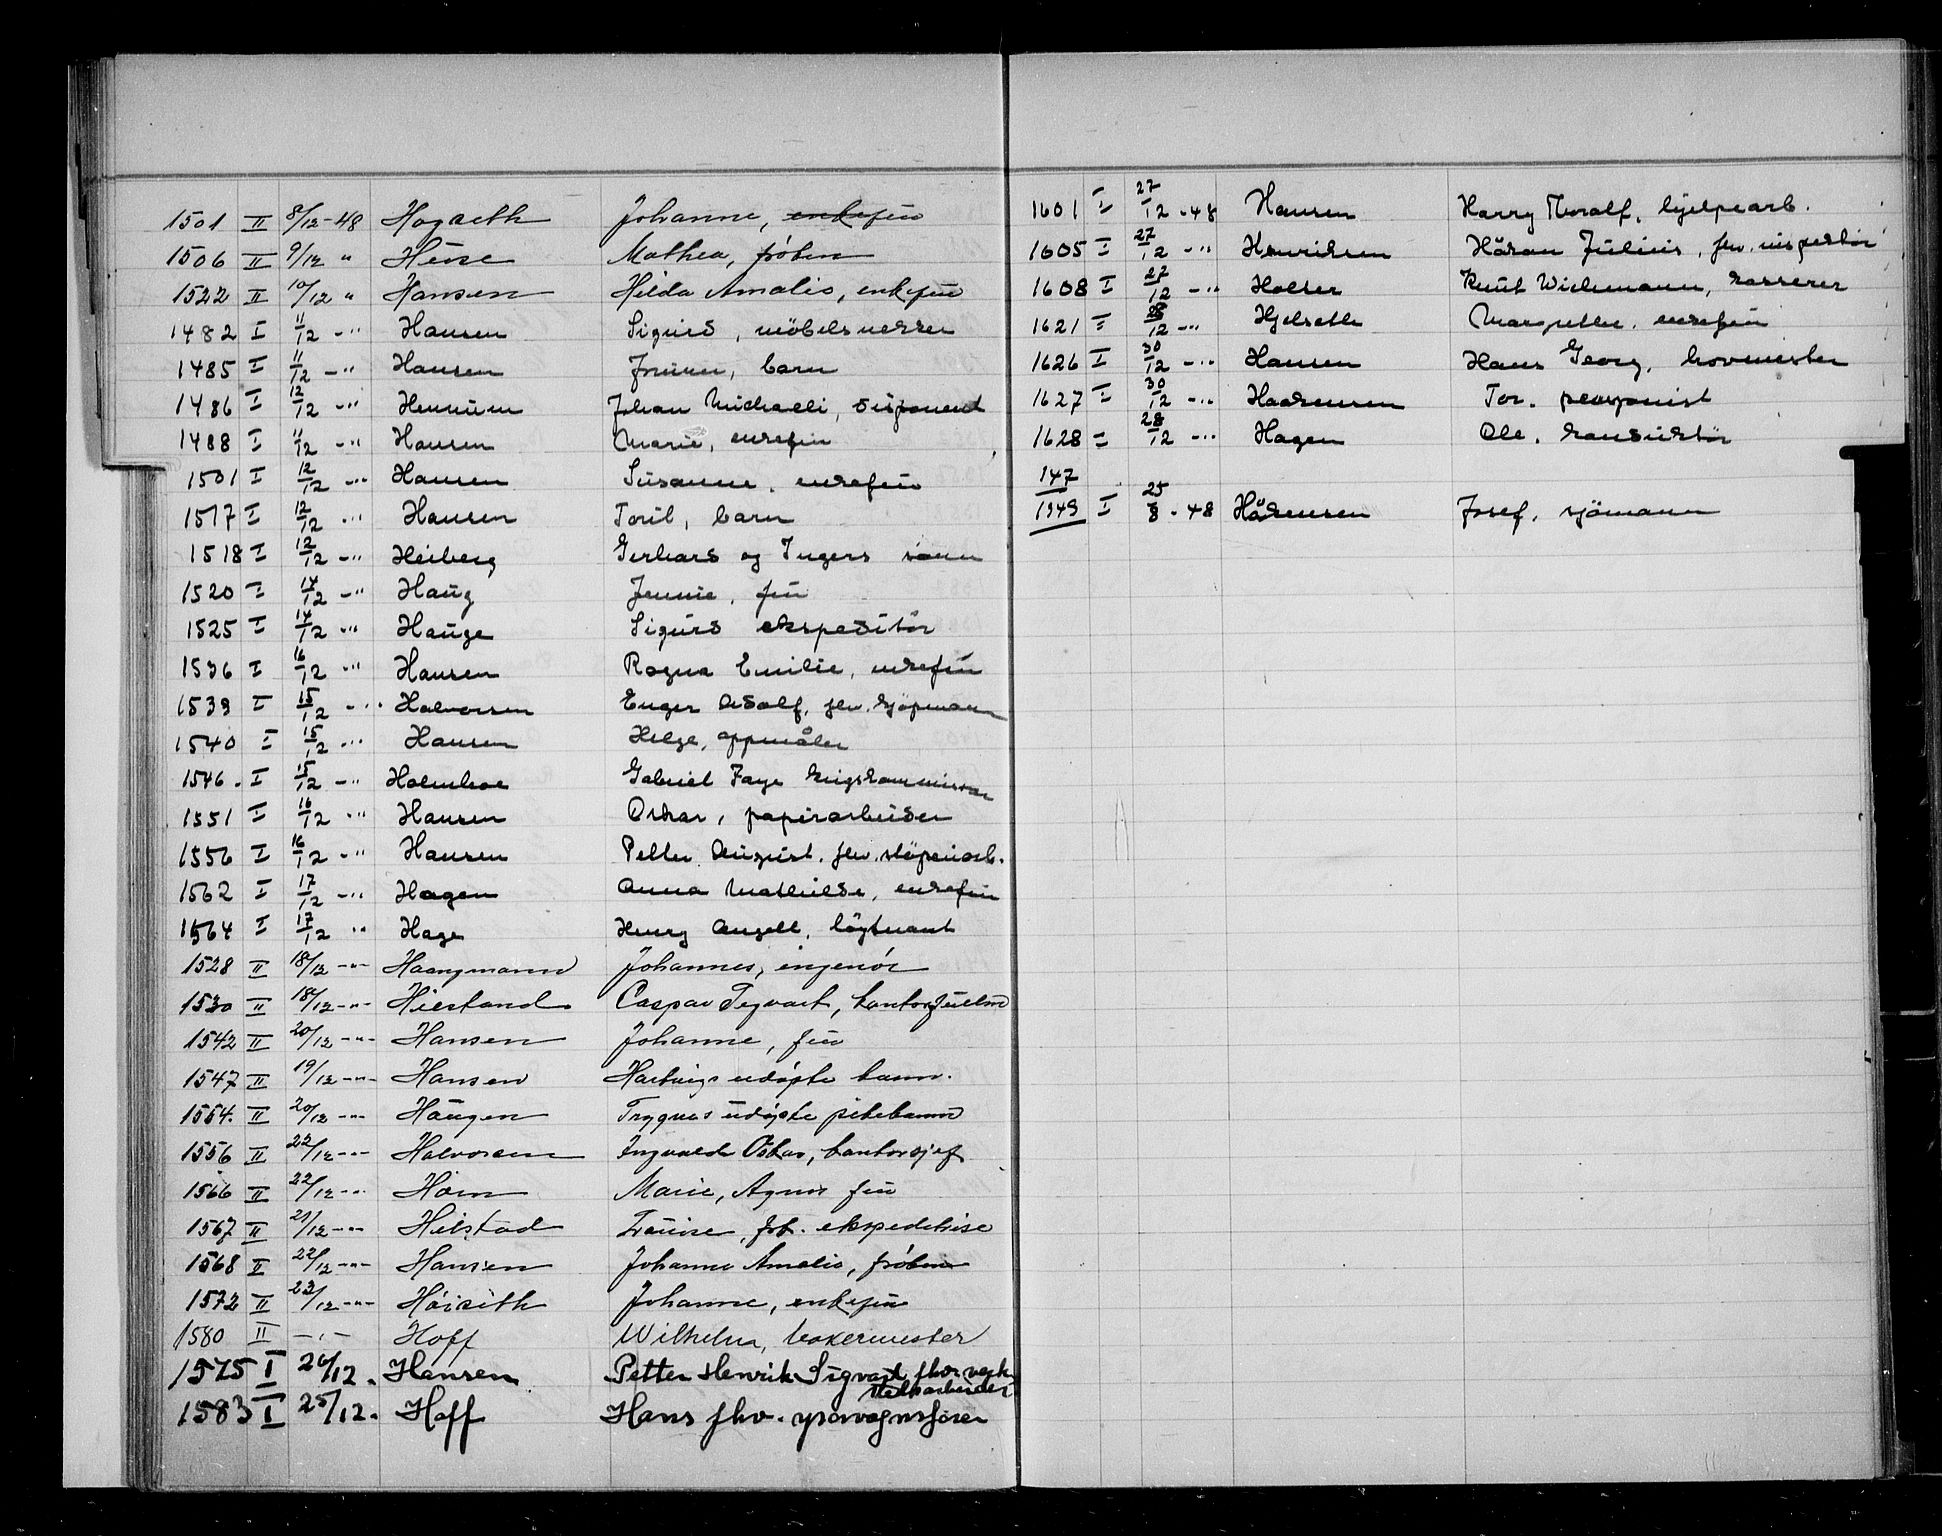 1501 II 8/12-48 Hogseth Johanne, enkefru
1506 II 9/12 " Heise Mathea, frøken
1522 II 10/12 " Hansen Hilda Amalie, enkefru
1482 I 11/12 -"- Hansen Sigurd, møbelsnekker
1485 I 11/12 -"- Hansen barn
1486 I 12/12 -"- Hennum Johan Michaeli, disponent
1488 I 11/12 -"- Hansen Marie, enkefru
1501 I 12/12 -"- Hansen Susanne, enkefru
1517 I 12/12 -"- Hansen Toril, barn
1518 I 12/12 -"- Heiberg Gerhard og Ingers sønn
1520 I 14/12 -"- Haug Jennie, fru
1525 I 14/12 -"- Hauge Sigurd ekspeditør
1536 I 16/12 -"- Hansen Ragna Emilie, enkefru
1539 I 15/12 -"- Halvorsen Adolf, fhv. kjøpmann
1540 I 15/12 -"- Hansen Helge, oppmåler
1546. I 15/12 -"- Holmboe Gabriel Faye krigskommissær
1551 I 16/12 -"- Hansen Oskar, papirarbeider
1556 I 16/12 -"- Hansen Petter August, fhv. støperiarb.
1562 I 17/12 -"- Hagen Anna Mathilde, enkefru
1564 I 17/12 " Hage Henry Angell, løytnant
1528 II 18/12 -"- Haangmann Johannes, ingeniør
1530 II 18/12 -"- Hiestand Caspar Tegvart,
1542 II 20/12 -"- Hansen Johanne, fru
1547 II 19/12 -"- Hansen Hartvigs udøpte barn.
1554. II 20/12 -"- Haugen Trygves udøpte pikebarn
1556 II 22/12 -"- Halvorsen Ingvald Oskar, kontorsjef
1566 II 22/12 -"- Horn Marie, Agnes fru
1567 II 21/12 -"- Helstad Louise, frk. ekspeditrise
1568 II 22/12 -"- Hansen Johanne Amalie, frøken
1572 II 23/12 -"- Høiseth Johanne, enkefru
1580 II -"- Hoff Wilhelm, bakermester
1575 I 26/12. Hansen Petter Henrik Sigvart fhv. verk-
stedsarbeider
1583 I 25/12. Hoff Hans fhv. sporvognsfører
1601 I 27/12-48 Hansen Harry Thoralf, hjelpearb.
1605 I 27/12 -"- Henriksen Håkon Julius, fhv. inspektør
1608 I 27/12 -"- Holter Knut Wichmann, kasserer
1621 I 28/12 -"- Hjelseth Margrethe, enkefru
1626 I 30/12 -"- Hansen Hans Georg, hovmester
1627 I 30/12 -"- Haakensen Tor, pensjonist
1628 I 28/12 -"- Hagen Ole, konduktør
147
1949 I 25/8-48 Håkensen Josef, sjømann